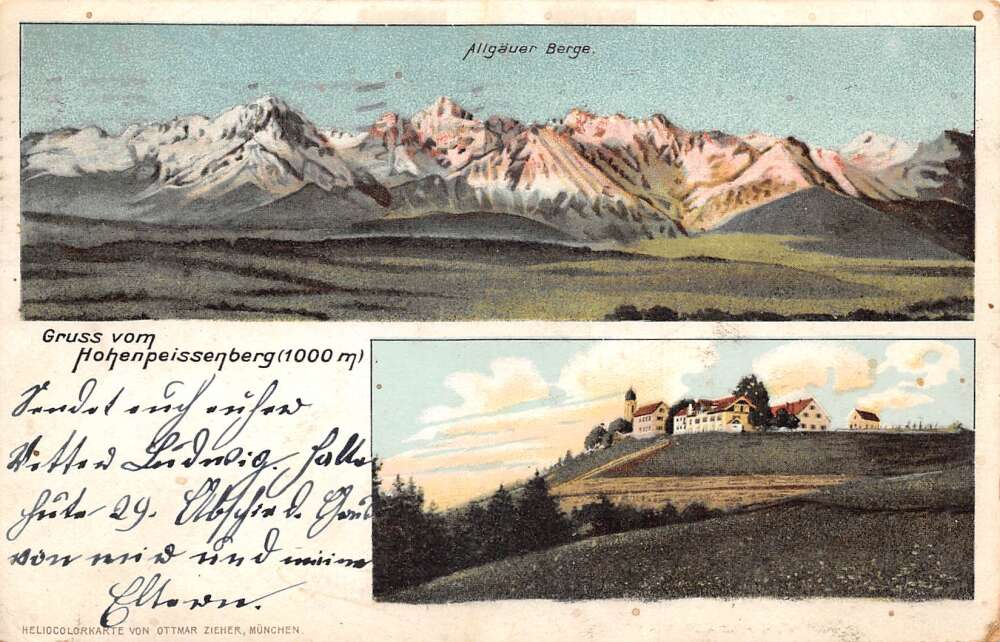 Allgäuer Berge.
Gruss vom
Hohenpeissenberg (1000 m)
Sendet euch euher
Vetter Ludwig. halte
heute 29. Abschied.
von mir und meine
Eltern.
HELIOCOLORKARTE VON OTTMAR ZIEHER, MÜNCHEN.